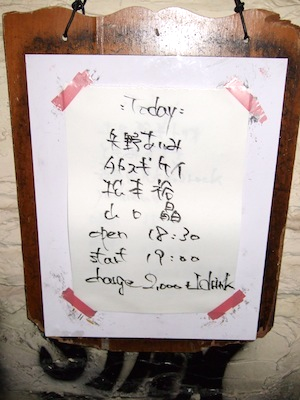 :Today:
矢野あゆみ
タカスギケイ
松本裕
山口晶
open 18:30
start 19:00
charge 2,000 + 1drink